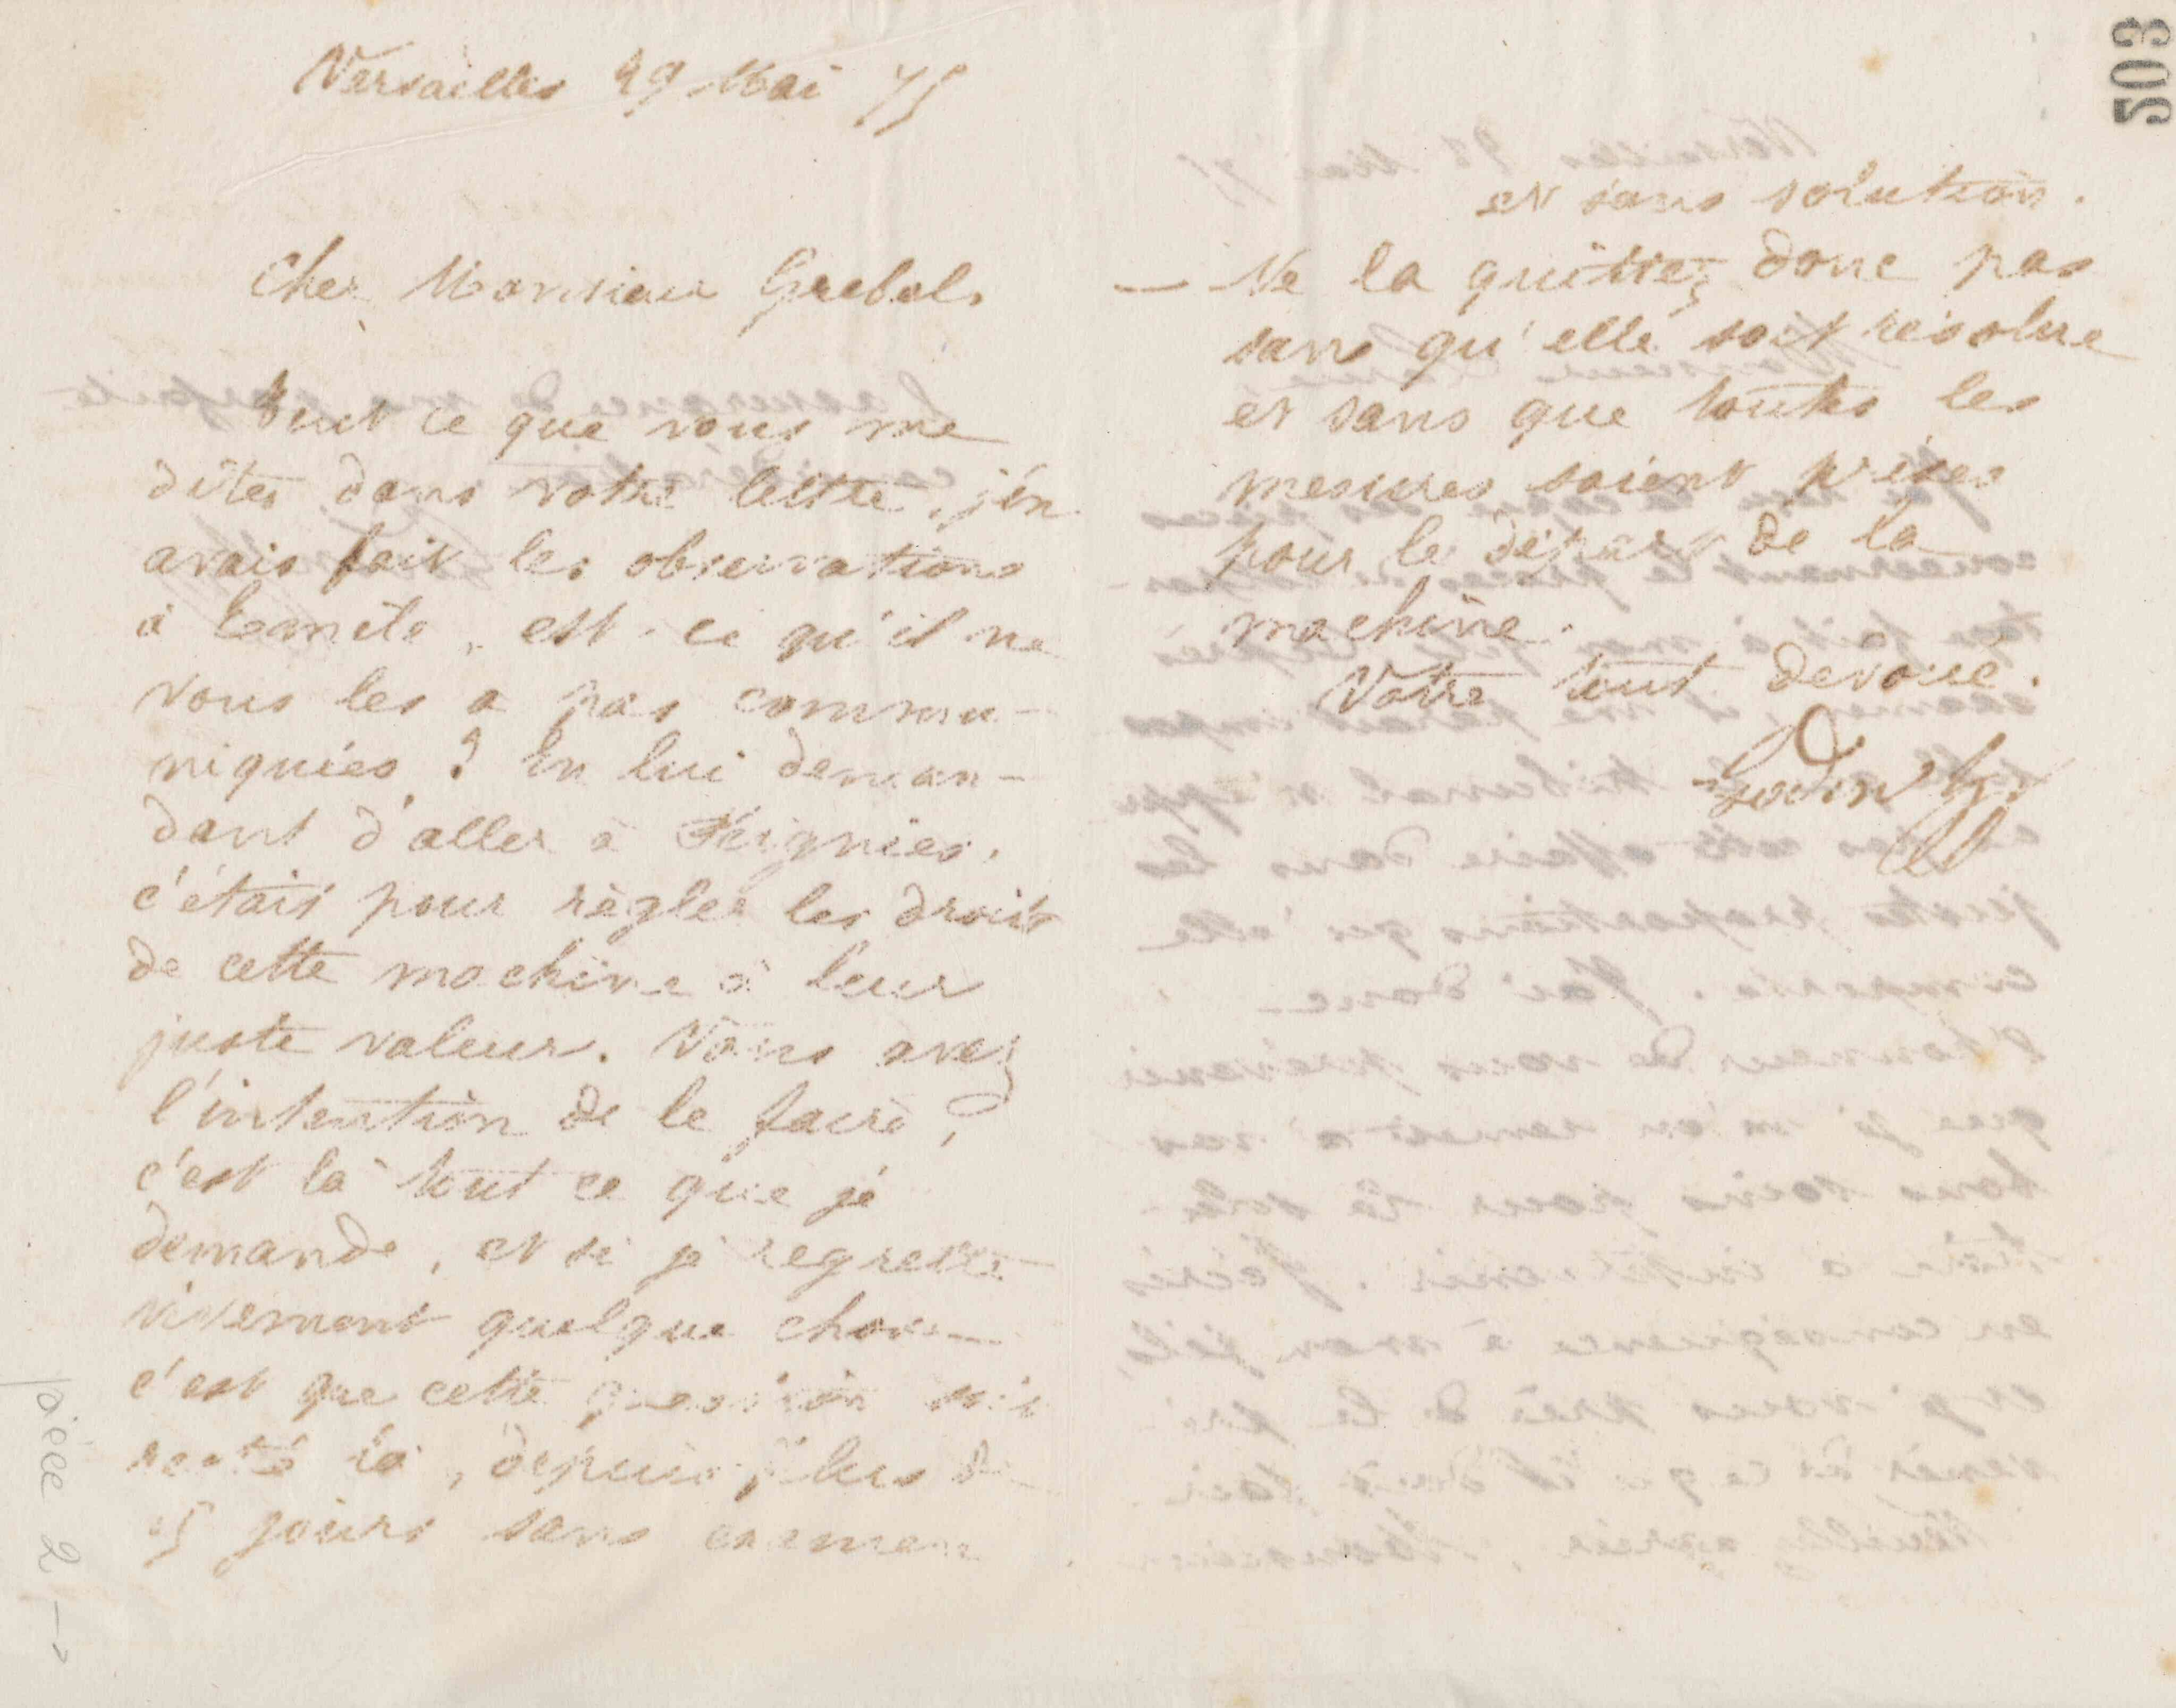 503
Versailles 29 Mai 75
Cher Monsieur Grebel.
Tout ce que vous me
dites dans votre lettre, j'en
avais fait les observations
à Emile, est-ce qu'il ne
vous les a pas commu-
niquées ? En lui deman-
dant d'aller à
c'était pour régler les droits
de cette machine à leur
juste valeur. Vous avez
l'intention de le faire,
c'est là tout ce que je
demande, et si je regrette
vivement quelque chose
c'est que cette question soit
resté là, depuis plus de
15 jours sans examen
et sans solution.
— Ne la quittez donc pas
sans qu'elle soit résolue
et sans que toutes les
mesures soient prises
pour le départ de la
machine.
Votre tout dévoué.
Godin
pièce 2 →